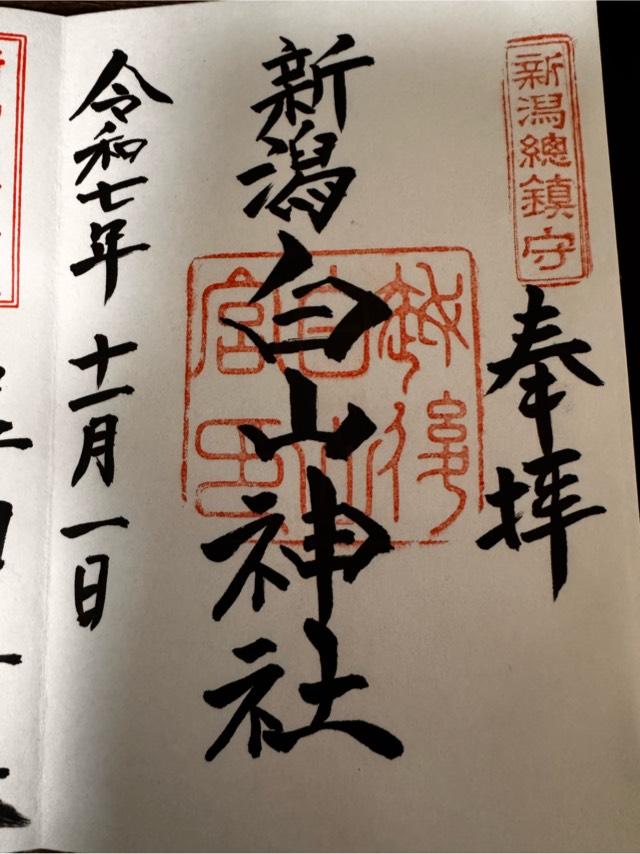 新潟總鎮守
奉拝
新潟白山神社
越後
白山
宮印
令和七年 十一月一日